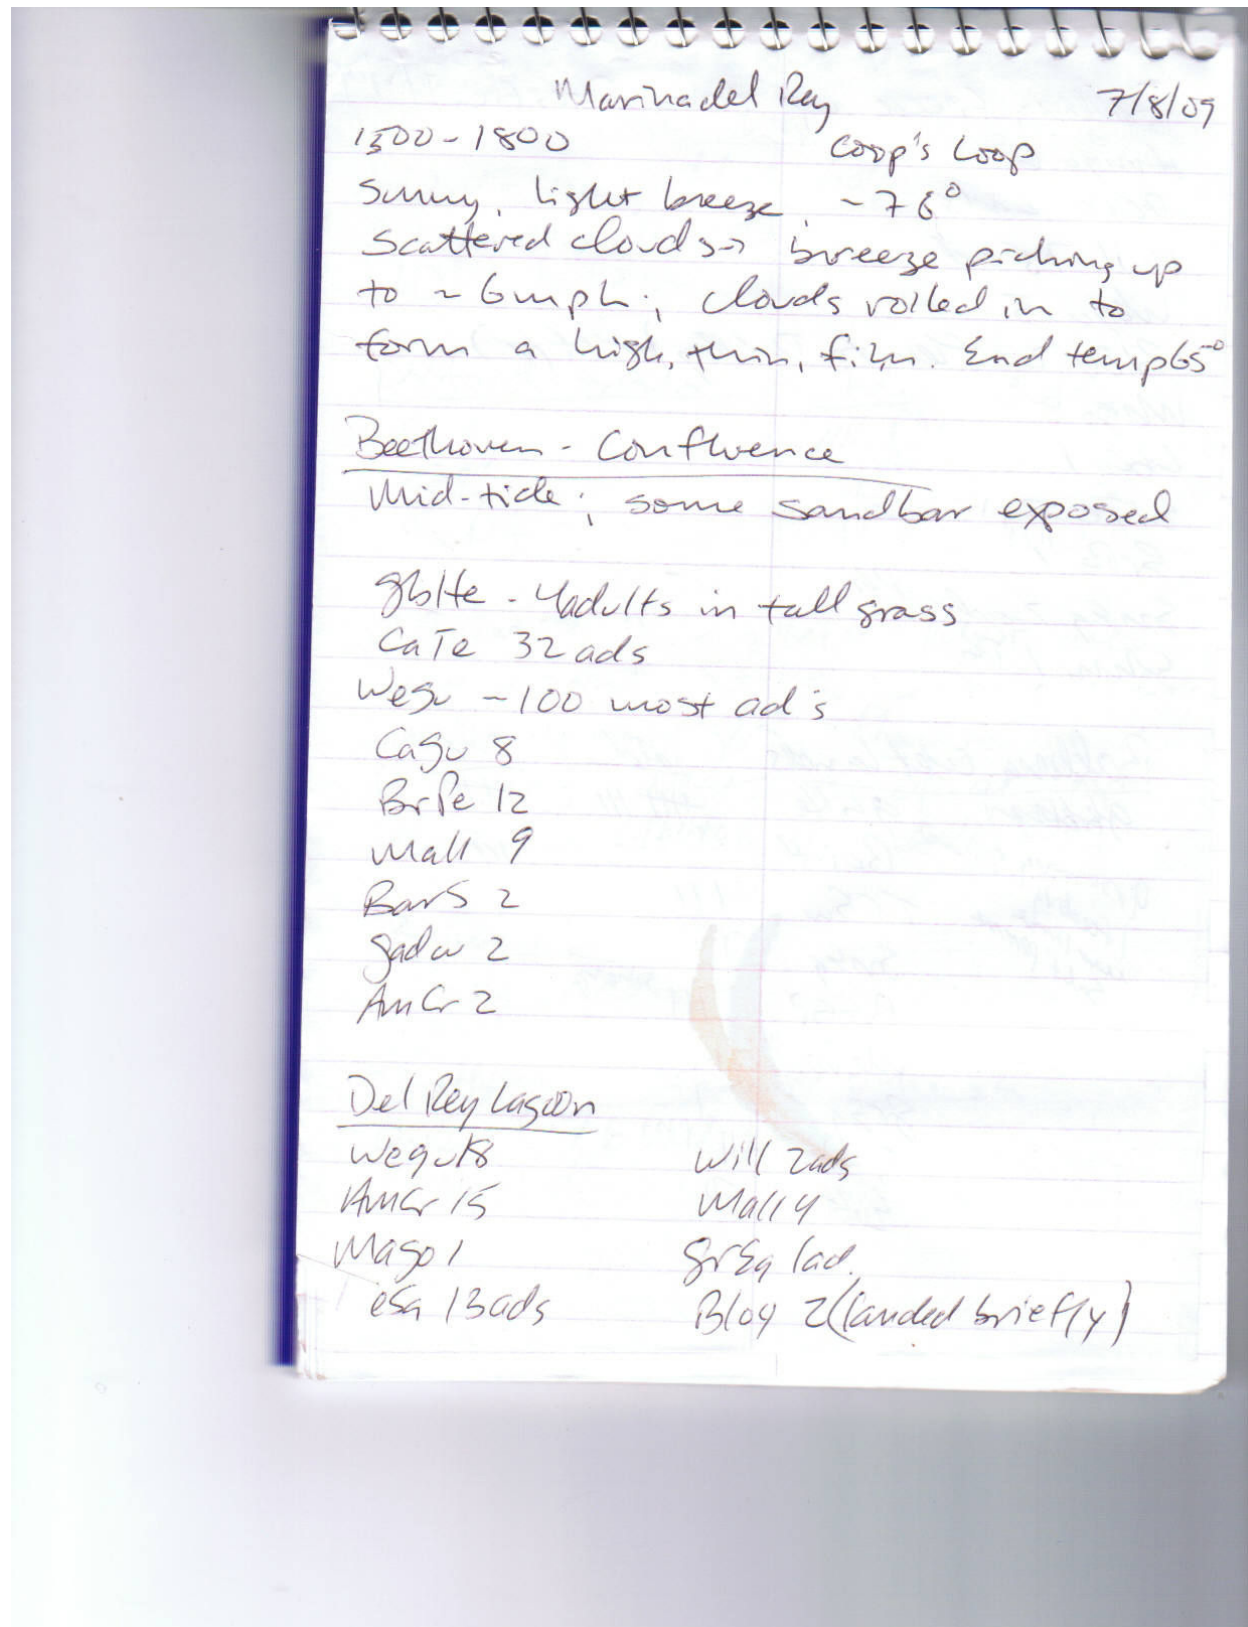 Marina del Rey 7/8/09
1500-1800 Coop's Loop
Sunny, light breeze, ~76°
scattered clouds → breeze picking up
to ~6mph; clouds rolled in to
form a high, thin, film. End temp 65°
Beethoven - Confluence
Mid-tide; some sandbar exposed
gbHe - 4adults in tall grass
CaTe 32 ads
Wegu ~100 most ad's
Cagu 8
BrPe 12
Mall 9
BarS 2
gadw 2
AmCr 2
Del Rey Lagoon
Wegu 18 Will 2ads
AmCr 15 Mall 4
Mago 1 grEg 1ad.
13ads Bloy 2 (landed briefly)